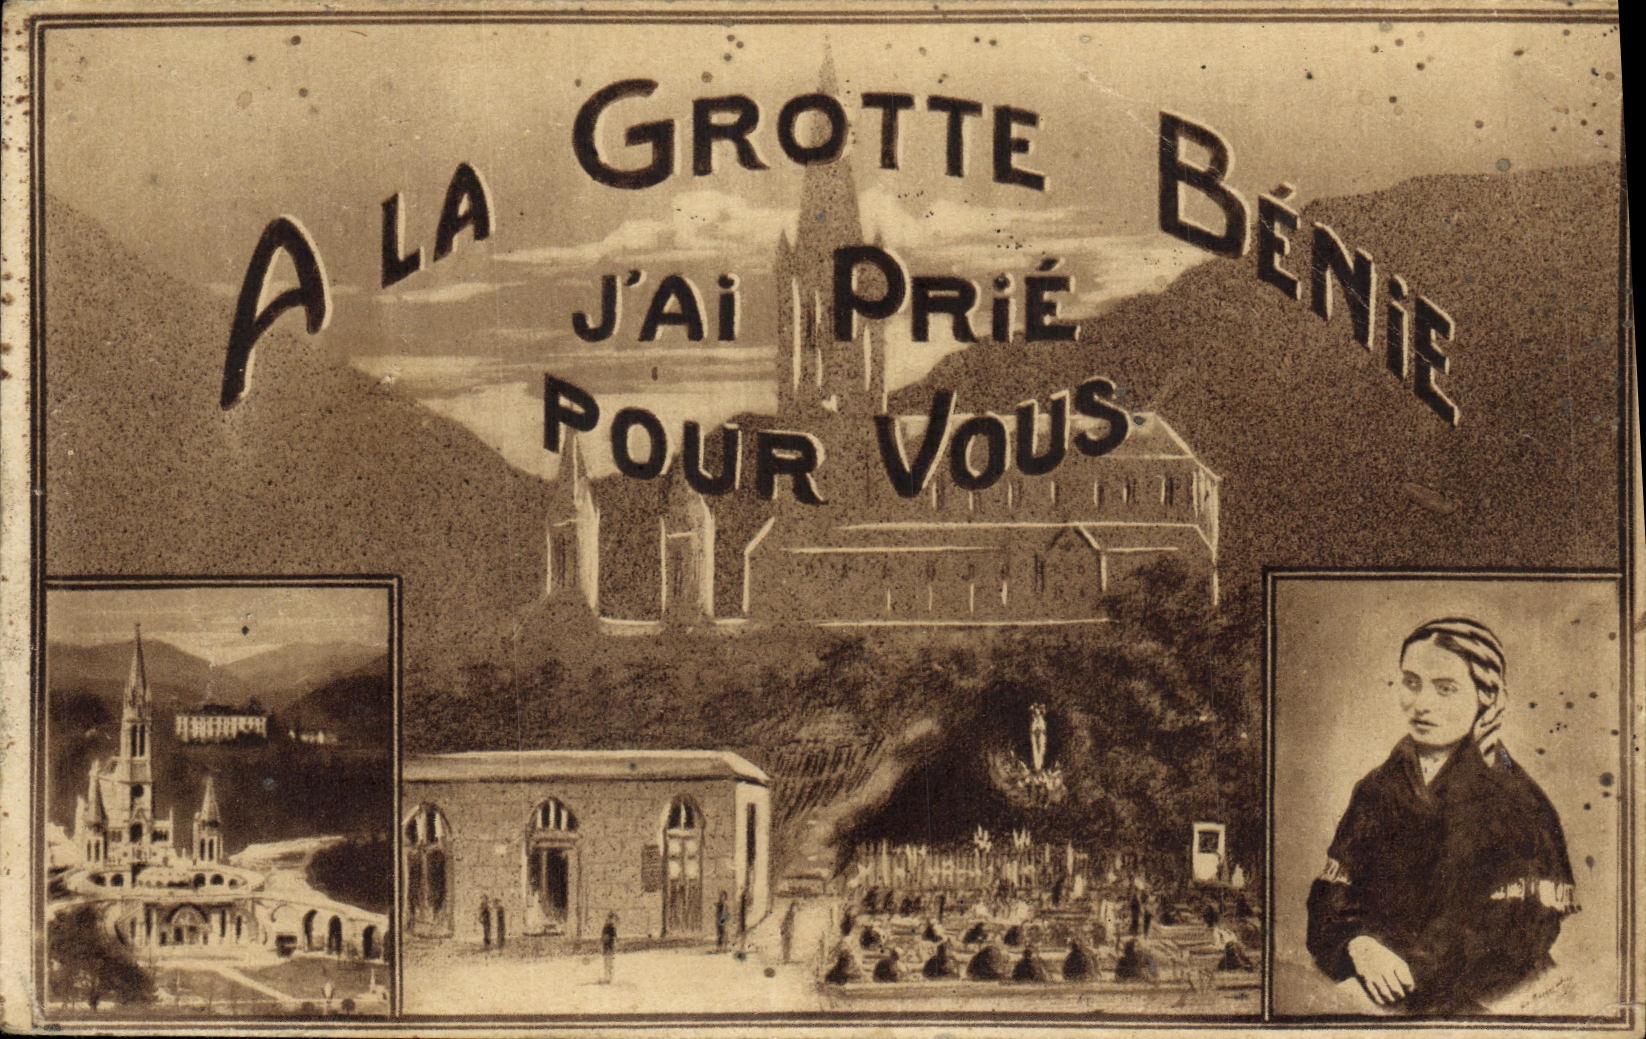 A LA GROTTE BÉNiE
J'Ai PRiÉ
POUR VOUS